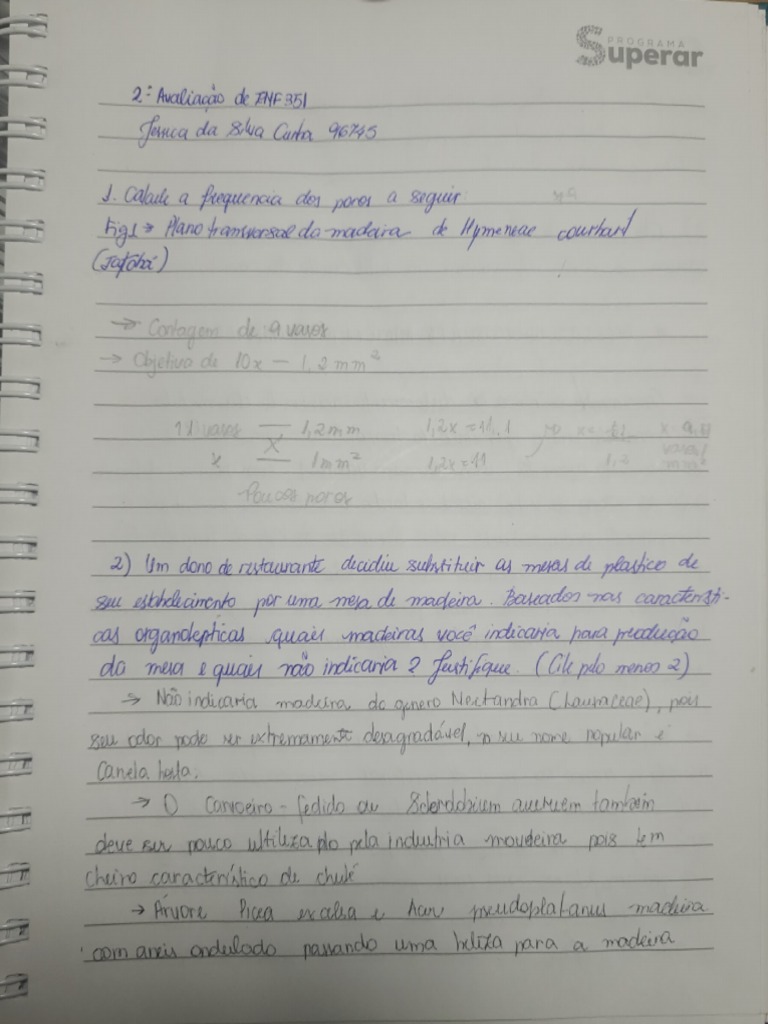 PROGRAMA
Superar
2ª Avaliação de ENF 351
Jessica da Silva Cunha 96745
1. Calcule a frequencia dos poros a seguir:
Fig 1 → Plano transversal da madeira de Hymeneae courbaril
(Jatobá)
→ Contagem de 9 vasos
→ Objetiva de 10x — 1,2 mm²
11 vasos — 1,2mm 1,2x = 11.1
x — 1mm² 1,2x = 11 1,2 vasos/mm²
Poucos poros
2) Um dono de restaurante decidiu substituir as mesas de plastico de
seu estabelecimento por uma mesa de madeira. Baseados nas caracteristi-
cas organolepticas quais madeiras você indicaria para produção
da mesa e quais não indicaria? Justifique. (Cite pelo menos 2)
→ Não indicaria madeira do genero Nectandra (Lauraceae), pois
seu odor pode ser extremamente desagradável, seu nome popular é
Canela bosta.
→ O Carvoeiro-fedido ou também
deve ser pouco ultilizado pela industria moveleira pois tem
cheiro característico de chulé
→ Árvore Picea excelsa e Acer pseudoplatanus madeira
com aneis ondulado passando uma beleza para a madeira